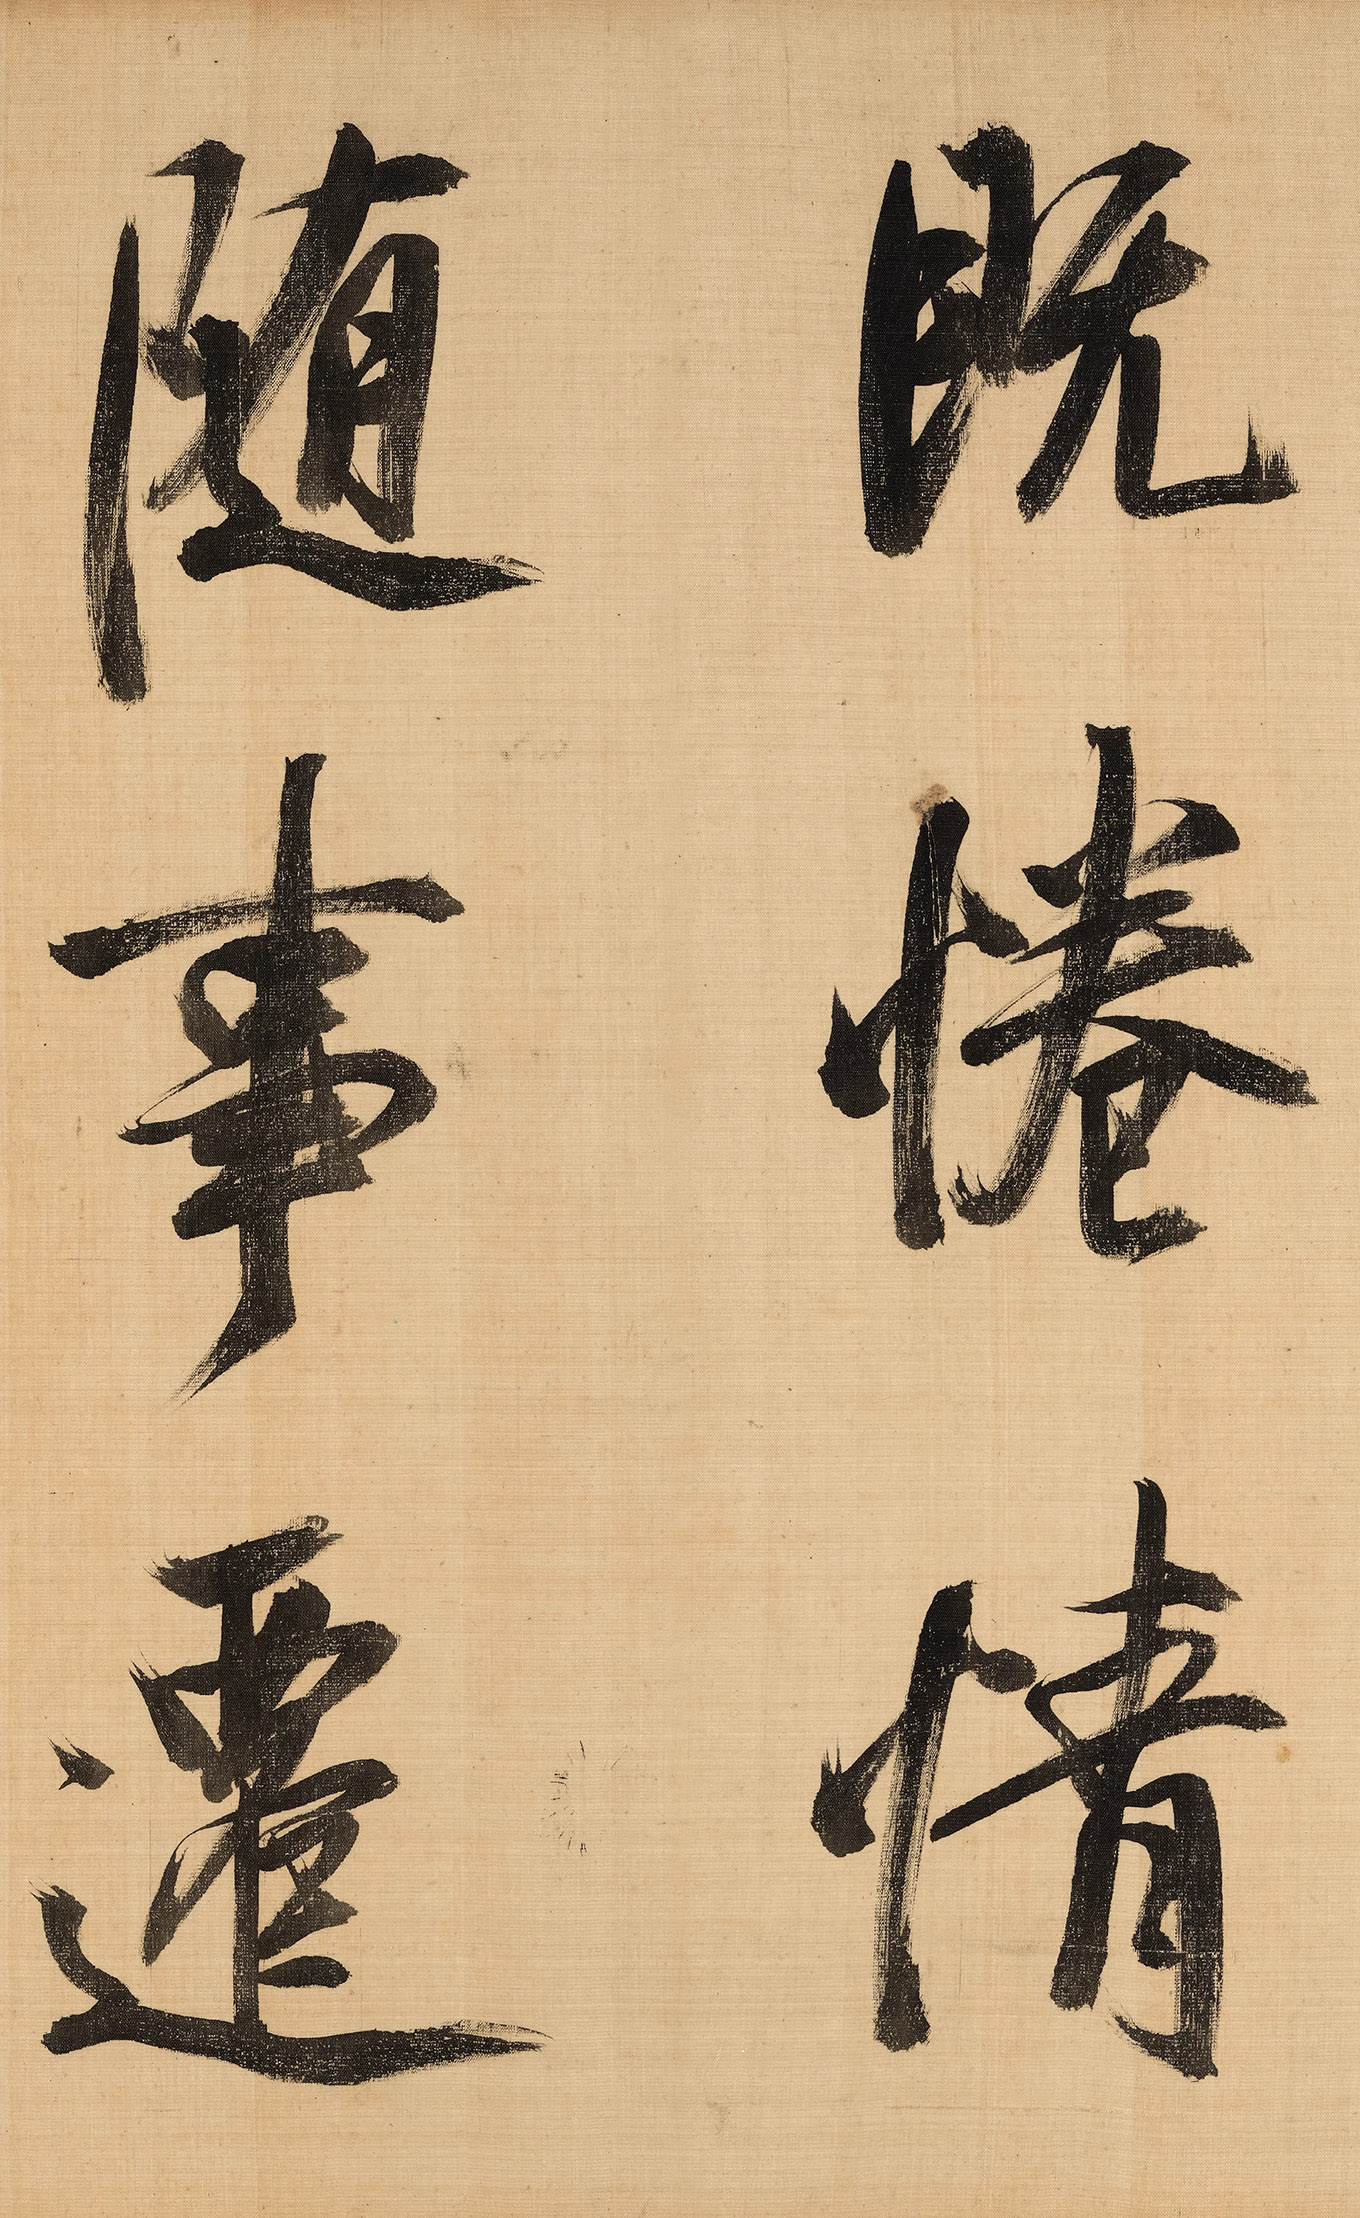 既惓情
随事遷